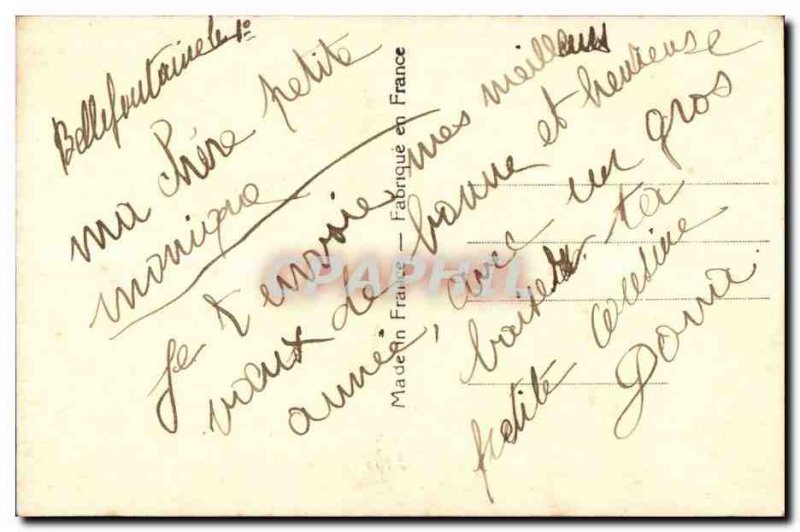 Bellefontaine le 1º
ma chère petite
monique
Je t envoie mes meilleurs
vœux de bonne et heureuse
année, avec un gros
baiser ta
petite cousine
Made in France — Fabriqué en France
CPAPHIL